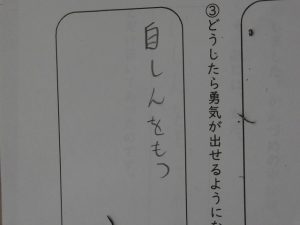 ③どうしたら勇気が出せるようにな
自しんをもつ